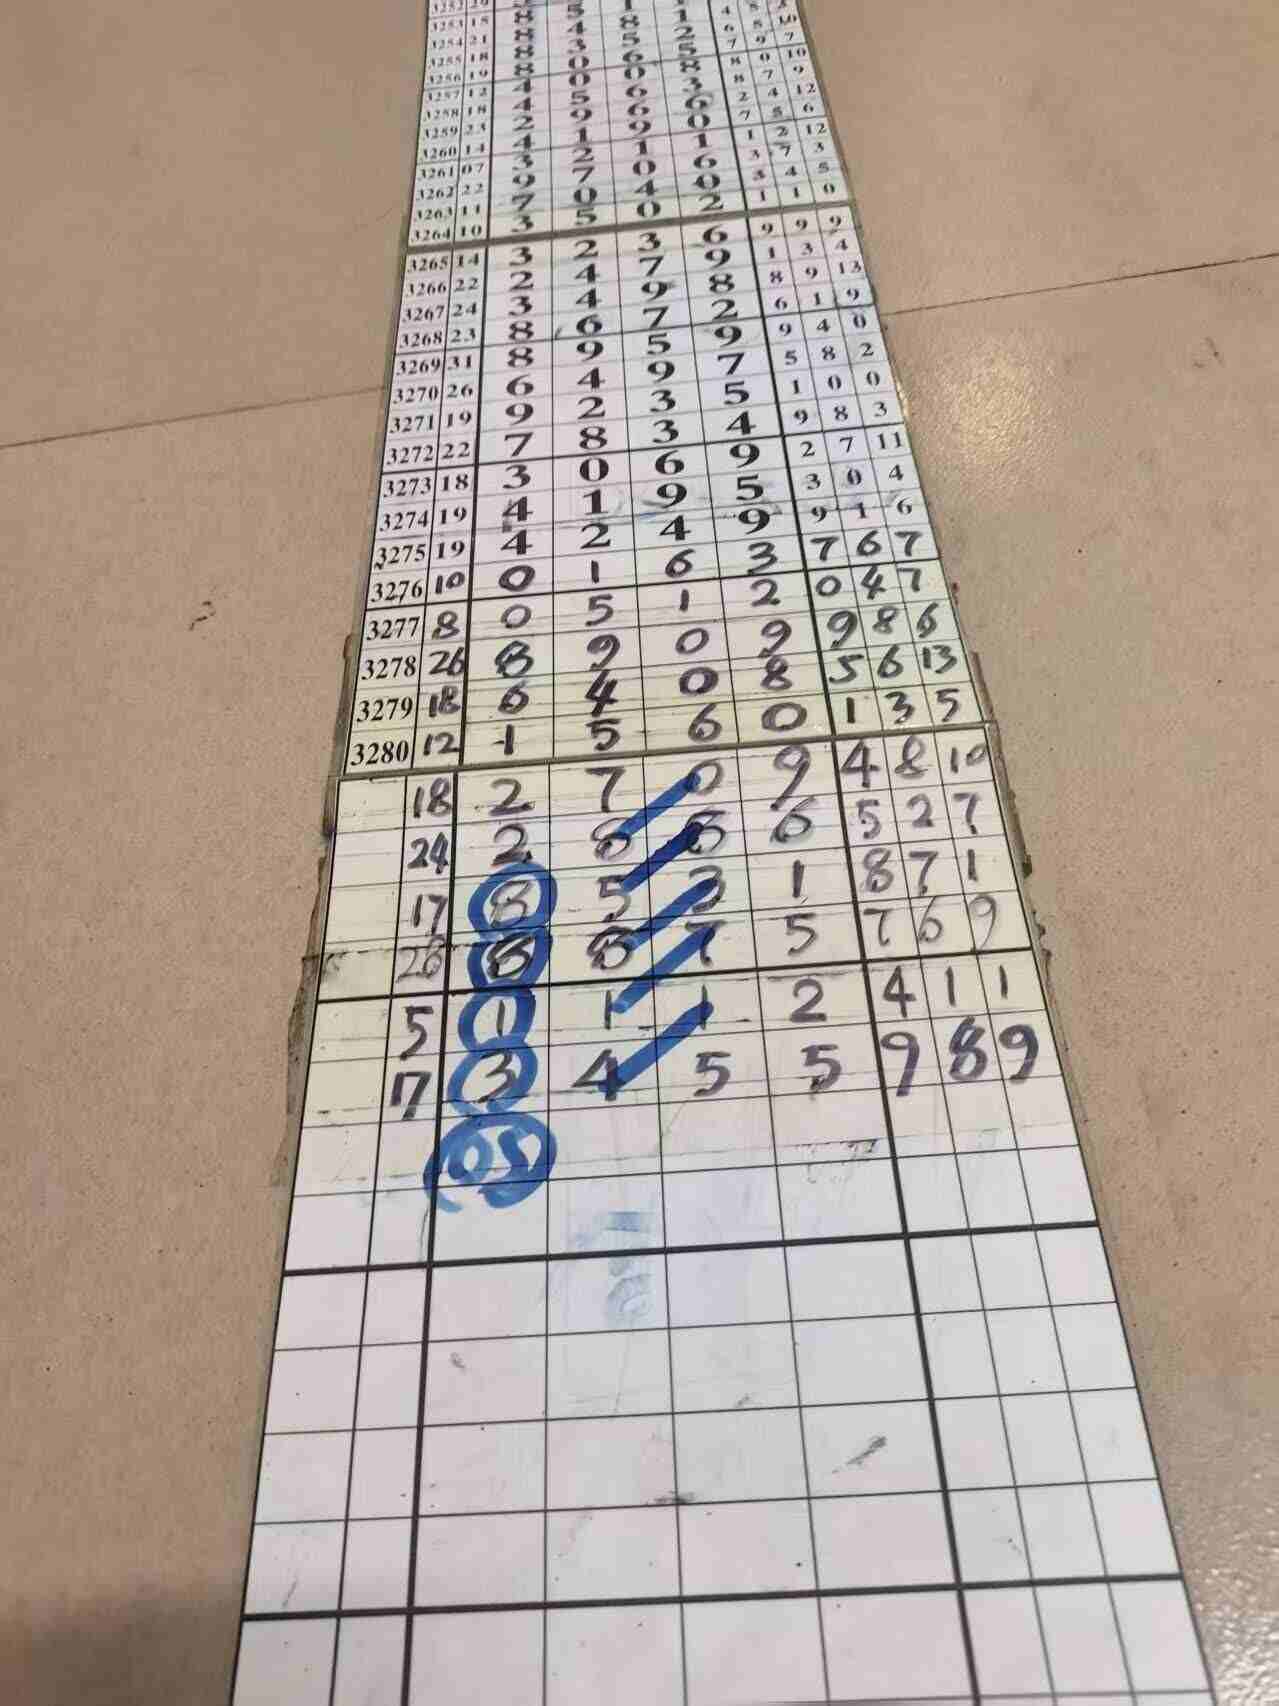 3252 29
3253 15 8 5 1 1
3254 21 8 4 8 1 4 8
3255 18 8 3 5 2 6 8 10
3256 19 8 0 6 5 7 9 7
3257 12 4 0 0 8 8 0 10
3258 18 4 5 6 3 8 7 9
3259 23 2 9 6 6 2 4 12
3260 14 4 1 9 0 7 5 6
3261 07 3 2 1 1 1 2 12
3262 22 9 7 0 6 3 7 3
3263 11 7 0 4 0 3 4 5
3264 10 3 5 0 2 1 1 0
3265 14 3 2 3 6 9 9 9
3266 22 2 4 7 9 1 3 4
3267 24 3 4 9 8 8 9 13
3268 23 8 6 7 2 6 1 9
3269 31 8 9 5 9 9 4 0
3270 26 6 4 9 7 5 8 2
3271 19 9 2 3 5 1 0 0
3272 22 7 8 3 4 9 8 3
3273 18 3 0 6 9 2 7 11
3274 19 4 1 9 5 3 0 4
3275 19 4 2 4 9 9 1 6
3276 10 0 1 6 3 7 6 7
3277 8 0 5 1 2 0 4 7
3278 26 8 9 0 9 9 8 6
3279 18 6 4 0 8 5 6 13
3280 12 1 5 6 0 1 3 5
18 2 7 0 9 4 8 10
24 2 8 8 6 5 2 7
17 8 5 3 1 8 7 1
26 6 8 7 5 7 6 9
5 1 1 1 2 4 1 1
17 3 4 5 5 9 8 9
05